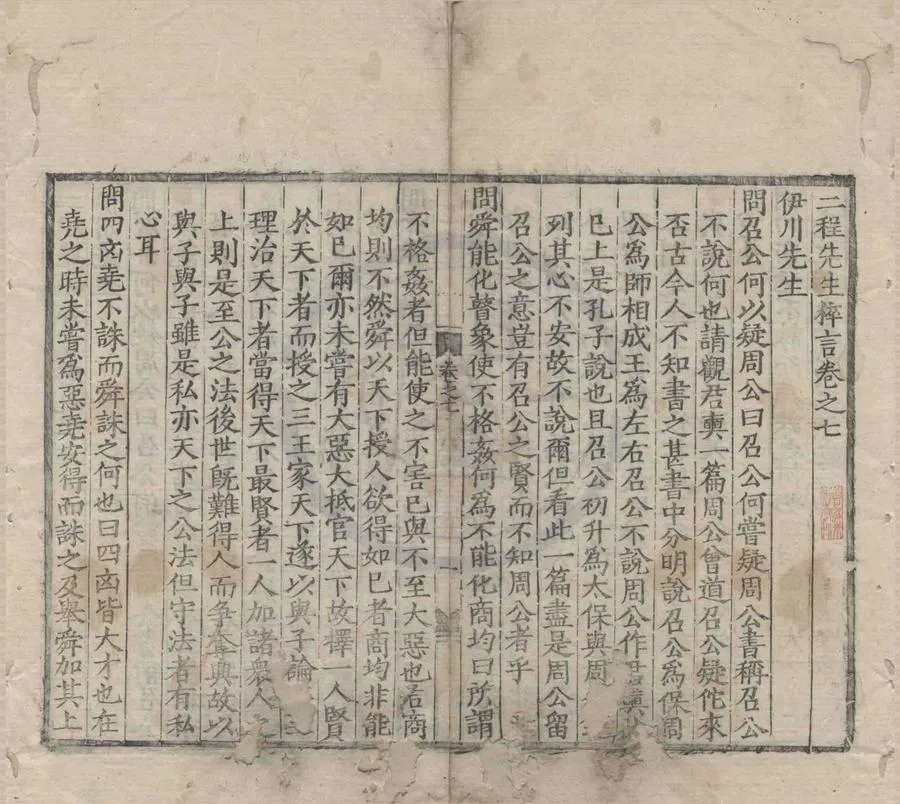 二程先生粹言卷之七
伊川先生
問召公何以疑周公曰召公何嘗疑周公書稱召公
不說何也請觀君奭一篇周公曾道召公疑佗來
否古今人不知書之甚書中分明說召公爲保周
公爲師相成王爲左右召公不說周公作君奭
已上是孔子說也且召公初升爲太保與周
列其心不安故不說爾但看此一篇盡是周公留
召公之意豈有召公之賢而不知周公者乎
問舜能化瞽象使不格姦何爲不能化商均曰所謂
卷之七
不格姦者但能使之不害己與不至大惡也若商
均則不然舜以天下授人欲得如己者商均非能
如已爾亦未嘗有大惡大抵官天下故擇一人賢
於天下者而授之三王家天下遂以與子論
理治天下者當得天下最賢者一人加諸衆人之
上則是至公之法後世旣難得人而爭奪興故以
與子與子雖是私亦天下之公法但守法者有私
心耳
問四凶堯不誅而舜誅之何也曰四凶皆大才也在
堯之時未嘗爲惡堯安得而誅之及舉舜加其上